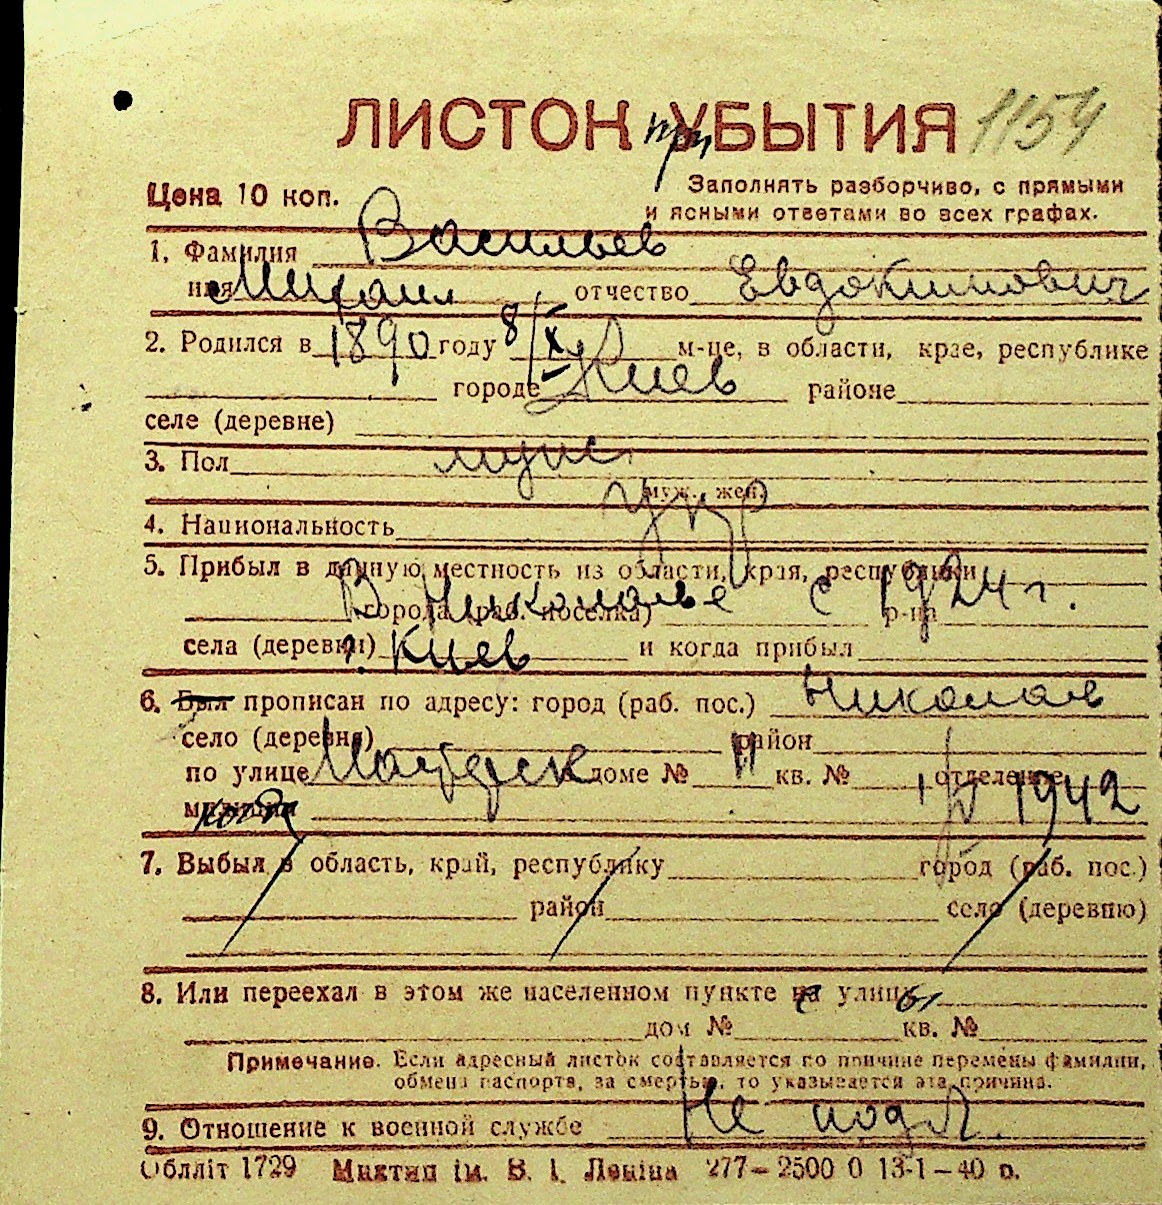 ЛИСТОК при УБЫТИЯ 1154
Цена 10 коп.
Заполнять разборчиво, с прямыми
и ясными ответами во всех графах.
1. Фамилия Васильев
имя Михаил отчество Евдокимович
2. Родился в 1890 году 8/X м-це, в области, крае, республике
городе Киев районе
селе (деревне)
3. Пол мужс.
муж. жен.
4. Национальность укр
5. Прибыл в данную местность из области, края, республики
В Николаеве с 1924 г.
города (раб. поселка) р-на
села (деревни) г. Киев и когда прибыл
6. Был прописан по адресу: город (раб. пос.) Николаев
село (деревня) район
по улице доме № 11 кв. № отделение
милиции 1942
7. Выбыл в область, край, республику город (раб. пос.)
район село (деревню)
8. Или переехал в этом же населенном пункте с улицы
дом № кв. №
Примечание. Если адресный листок составляется по причине перемены фамилии,
обмена паспорта, за смертью, то указывается эта причина.
9. Отношение к военной службе Не подл.
Облліт 1729 Миктип ім. В. І. Леніна 277—2500 0 13-1—40 р.